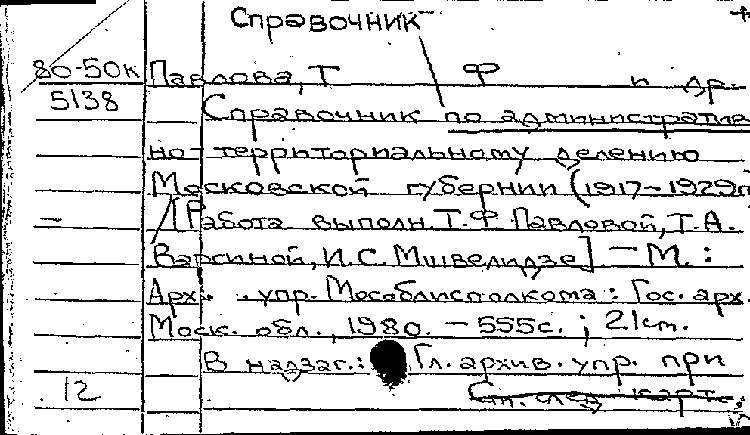 Справочник
80-50к Павлова, Т Ф и др.
5138 Справочник по административ
но-территориальному делению
Московской губернии (1917-1929г
/[Работа выполн. Т.Ф. Павловой, Т.А.
И.С. Мшвелидзе] - М.:
Арх. упр. Мособлисполкома: Гос. арх.
Моск. обл., 1980. - 555с.; 21см.
В надзаг.: Гл. архив. упр. при
12 См. след. карт.